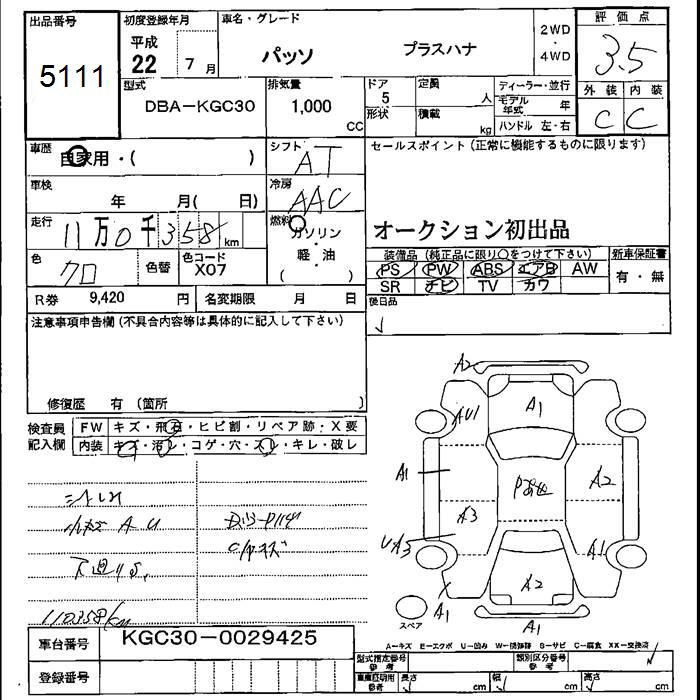 出品番号
5111
初度登録年月
平成
22 7月
車名・グレード
パッソ プラスハナ
2WD
・
4WD
評価点
3.5
型式
DBA-KGC30
排気量
1,000
CC
ドア
5
形状
定員
人
積載
kg
ディーラー・並行
モデル年式 年
ハンドル 左・右
外装 内装
C C
車歴
自家用・( )
シフト
AT
セールスポイント(正常に機能するものに限ります)
オークション初出品
車検
年 月( 日)
冷房
AAC
走行
11万0千358km
燃料
ガソリン
・
軽・油
( )
色
クロ
色替
色コード
X07
装備品(純正品に限り○をつけて下さい)
PS PW ABS エアB AW
SR ナビ TV カワ
新車保証書
有・無
R券 9,420 円
名変期限 月 日
後日品
注意事項申告欄(不具合内容等は具体的に記入して下さい)
修復歴 有(箇所 )
検査員
記入欄
FW キズ・飛石・ヒビ割・リペア跡・X要
内装 キズ・汚レ・コゲ・穴・スレ・キレ・破レ
小キズ A U
110358km
A2
A1
AU1
A1
A2
A3
UA3
A1
A2
A1
A1
スペア
車台番号
KGC30-0029425
登録番号
A-キズ E-エクボ U-凹み W-補修跡 S-サビ C-腐食 XX-交換済
型式指定番号
参考
類別区分番号
参考
車庫証明用
参考
長さ cm
幅 cm
高さ cm